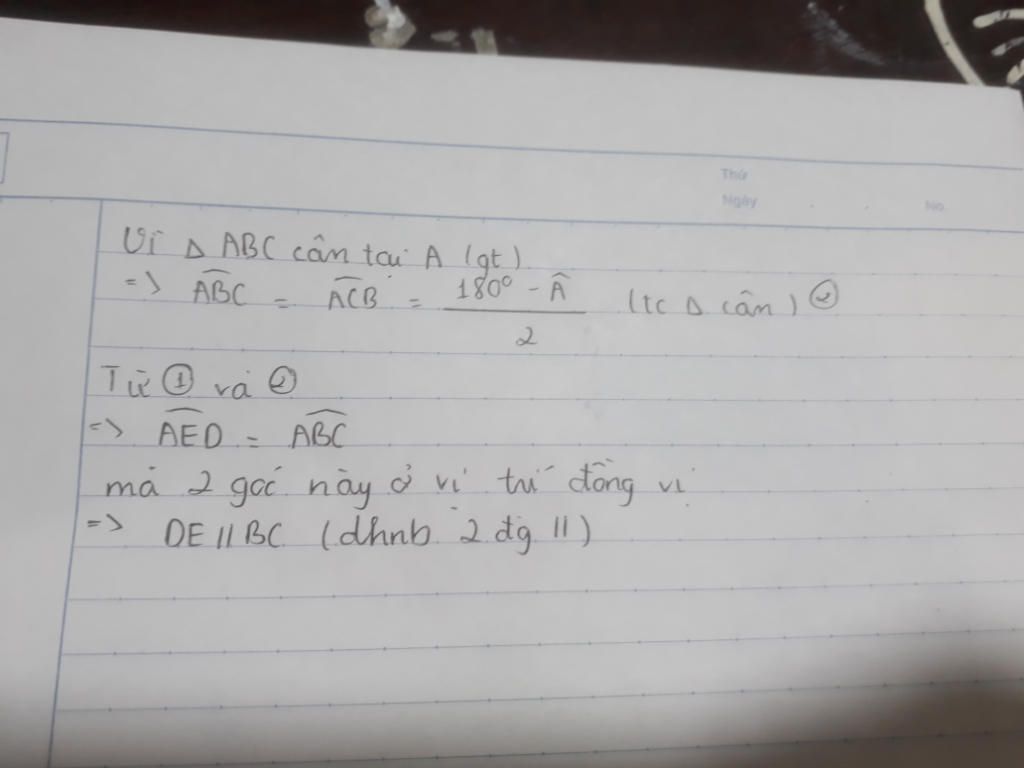 Thứ
Ngày No.
Vì Δ ABC cân tại A (gt)
=> \widehat{ABC} = \widehat{ACB} = \frac{180° - \widehat{A}}{2} (tc Δ cân) ②
Từ ① và ②
=> \widehat{AED} = \widehat{ABC}
mà 2 góc này ở vị trí đồng vị
=> DE // BC (dhnb 2 đg //)